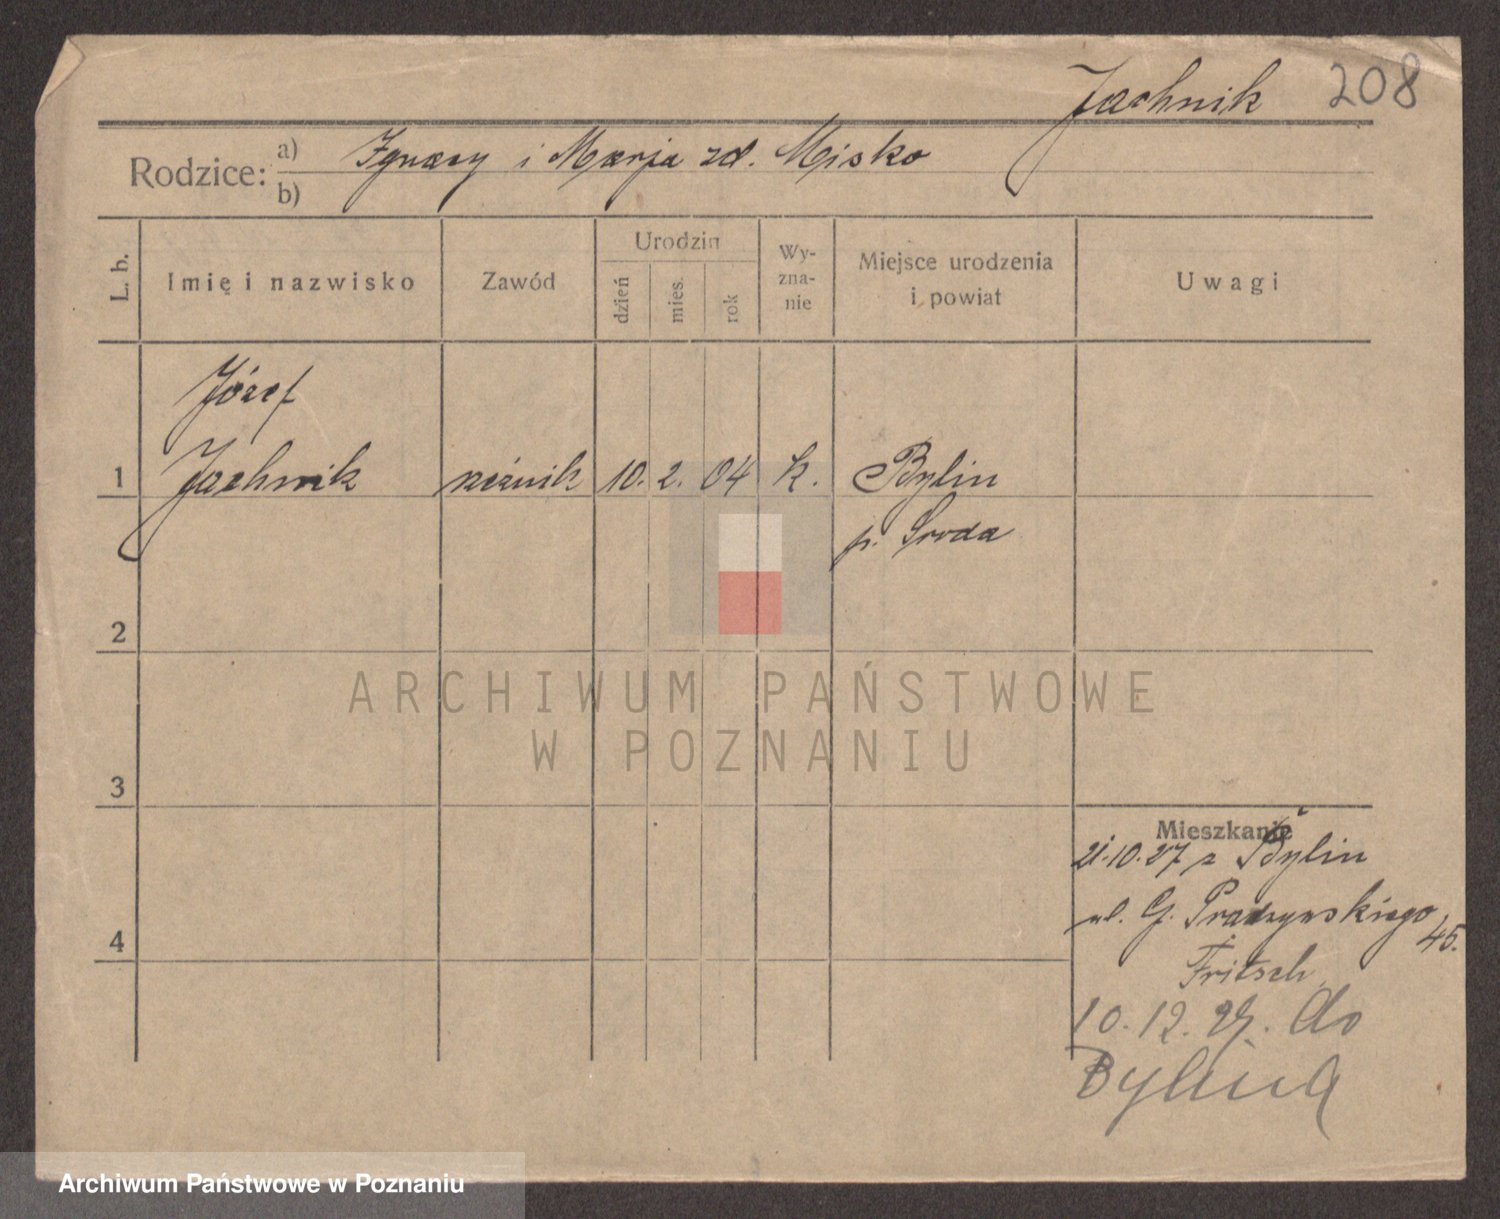 Jachnik 208
Rodzice: a) Ignacy i Marja zd. Misko
b)
L. b. Imię i nazwisko Zawód Urodzin dzień mies. rok Wy-zna-nie Miejsce urodzenia i powiat Uwagi
Józef
1 Jachnik rzeźnik 10. 2. 04 k. Bylin
p. Sroda
2
ARCHIWUM PAŃSTWOWE
W POZNANIU
3
Mieszkanie
21.10.27 z Bylin
ul. G. Prądzyńskiego 45.
4
Fritsch
10.12.27. do
Bylina
Archiwum Państwowe w Poznaniu